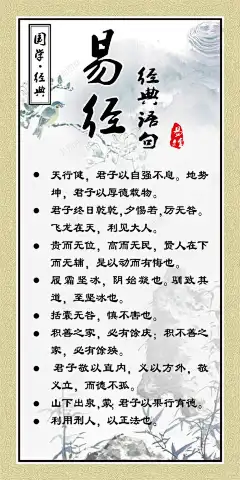 国学·经典
易经
经典语句
天行健，君子以自强不息。地势
坤，君子以厚德载物。
君子终日乾乾,夕惕若,厉无咎。
飞龙在天，利见大人。
贵而无位，高而无民，贤人在下
而无辅，是以动而有悔也。
履霜坚冰，阴始凝也。驯致其
道，至坚冰也。
括囊无咎，慎不害也。
积善之家，必有馀庆；积不善之
家，必有馀殃。
君子敬以直内，义以方外，敬
义立，而德不孤。
山下出泉,蒙；君子以果行育德。
利用刑人，以正法也。